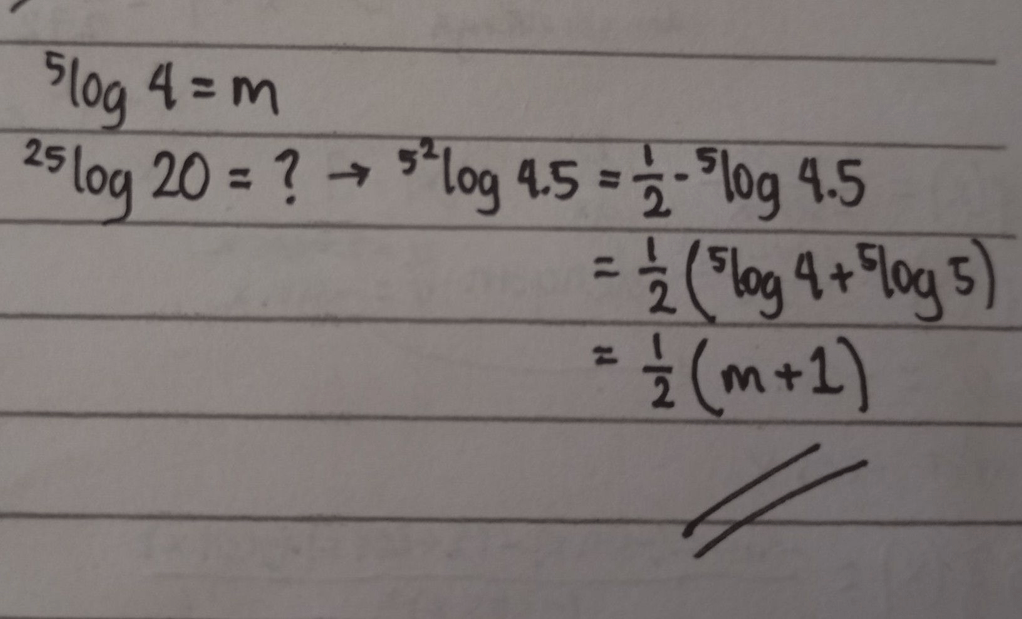 ⁵log 4 = m
²⁵log 20 = ? → ⁵²log 4.5 = 1/2 - ⁵log 4.5
= 1/2 (⁵log 4 + ⁵log 5)
= 1/2 (m + 1)